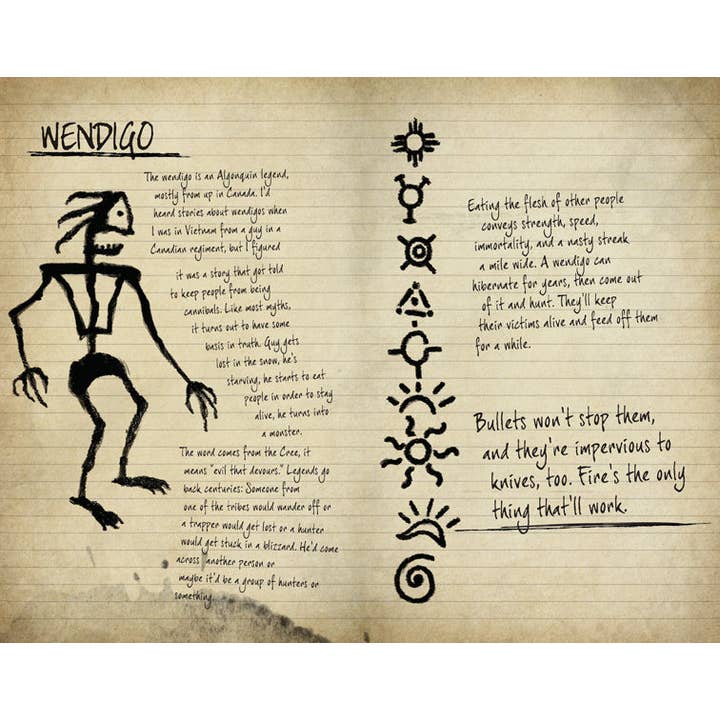 WENDIGO
The wendigo is an Algonquin legend,
mostly from up in Canada. I'd
heard stories about wendigos when
I was in Vietnam from a guy in a
Canadian regiment, but I figured
it was a story that got told
to keep people from being
cannibals. Like most myths,
it turns out to have some
basis in truth. Guy gets
lost in the snow, he's
starving, he starts to eat
people in order to stay
alive, he turns into
a monster.
The word comes from the Cree, it
means "evil that devours." Legends go
back centuries: Someone from
one of the tribes would wander off or
a trapper would get lost or a hunter
would get stuck in a blizzard. He'd come
across another person or
maybe it'd be a group of hunters or
something.
Eating the flesh of other people
conveys strength, speed,
immortality, and a nasty streak
a mile wide. A wendigo can
hibernate for years, then come out
of it and hunt. They'll keep
their victims alive and feed off them
for a while.
Bullets won't stop them,
and they're impervious to
knives, too. Fire's the only
thing that'll work.